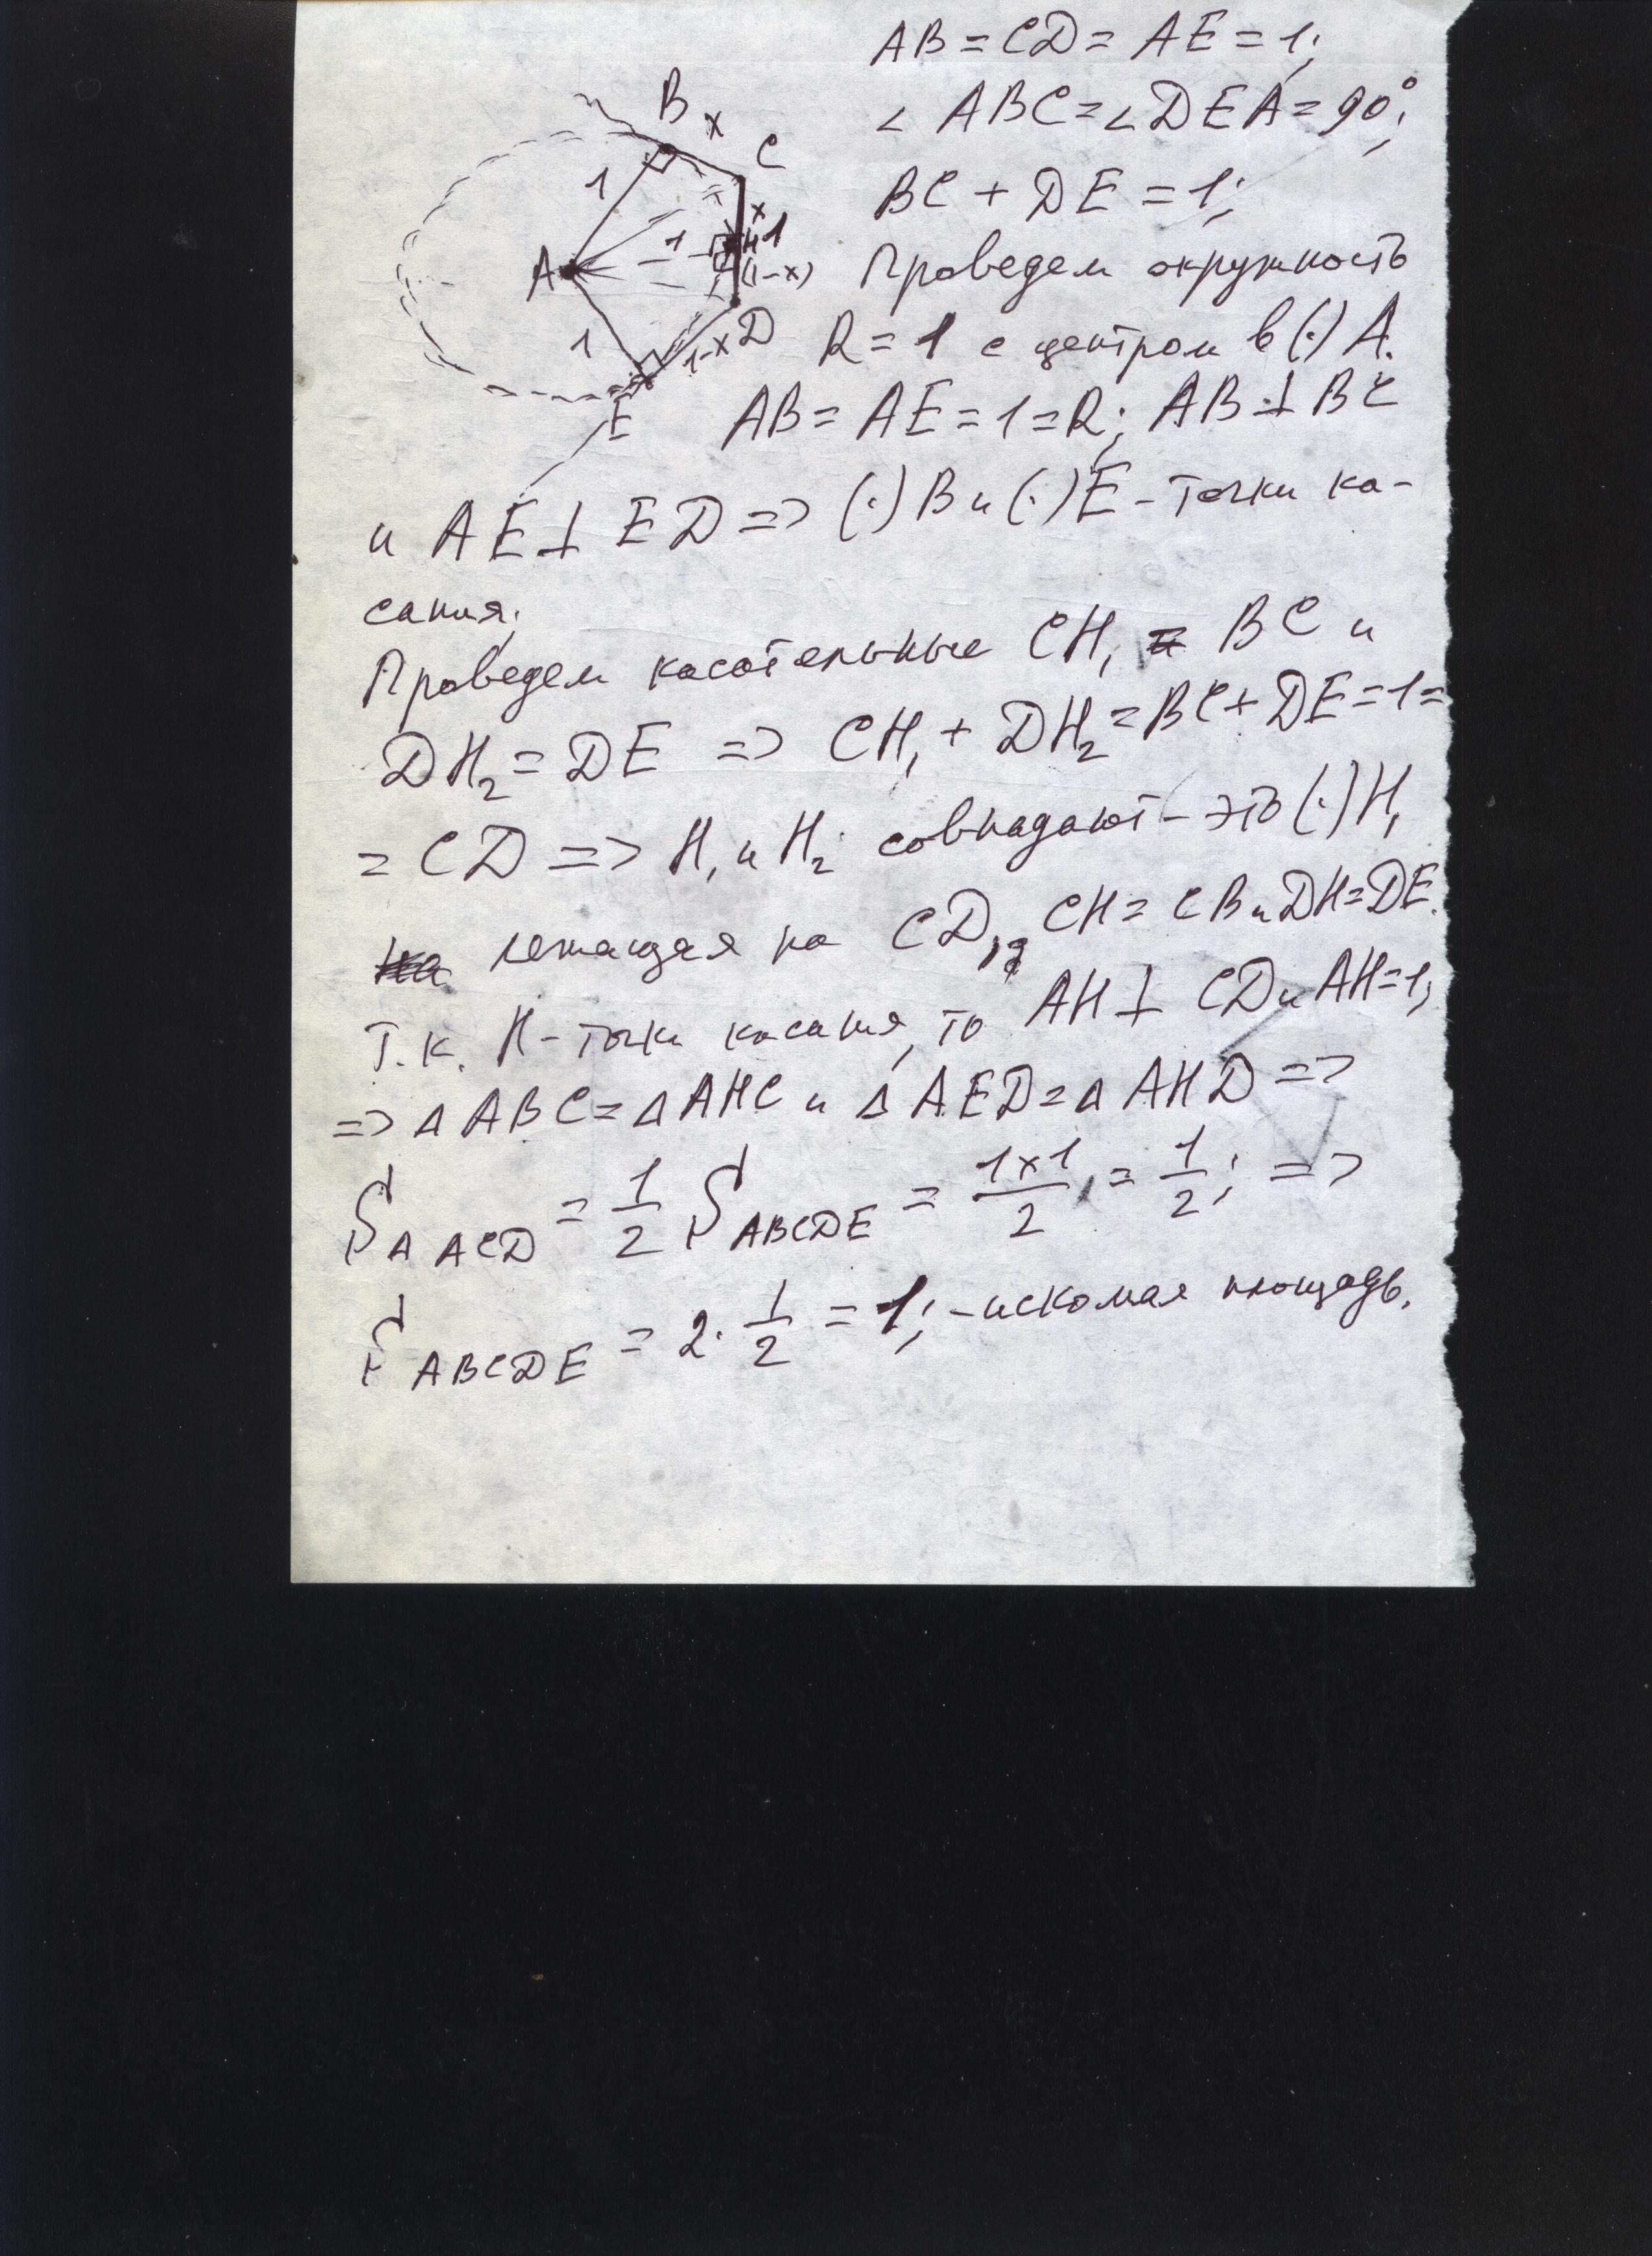 AB = CD = AE = 1;
∠ ABC = ∠ DEA = 90°;
BC + DE = 1;
Проведем окружность
R = 1 с центром в (·) A.
AB = AE = 1 = R; AB ⊥ BC
и AE ⊥ ED => (·) B и (·) E - точки ка-
сания;
Проведем касательные CH₁ = BC и
DH₂ = DE => CH₁ + DH₂ = BC + DE = 1 =
= CD => H₁ и H₂ совпадают - это (·) H,
лежащая на CD, CH = CB и DH = DE.
Т.к. H - точка касания, то AH ⊥ CD и AH = 1;
=> Δ ABC = Δ AHC и Δ AED = Δ AHD =>
S Δ ACD = 1/2 S ABCDE = 1×1/2 = 1/2; =>
S ABCDE = 2 · 1/2 = 1; - искомая площадь.
B
x
C
1
x
A
1
H
1
(1-x)
1
1-x
D
E